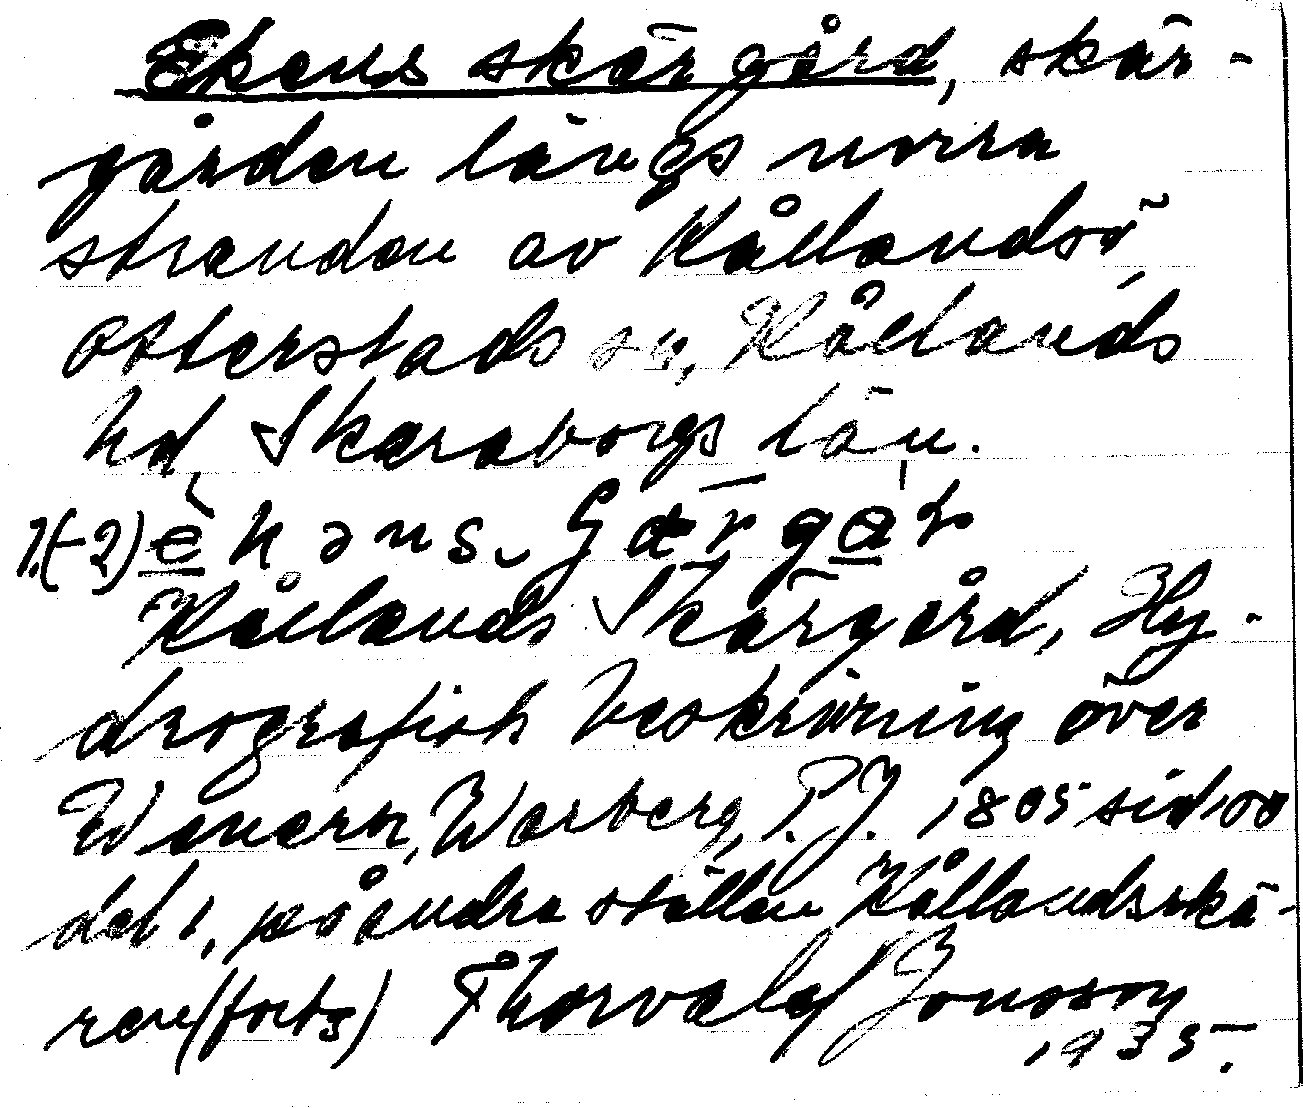 Ekens skärgård, skär-
gården längs norra
stranden av Kållandsö,
Otterstads sn, Kållands
hd, Skaraborgs län.
Kållands Skärgård, Hy-
drografisk beskrivning över
Wenern, Warberg, P. J. 1805 sid 100
del 1, på andra ställen Kållandsskä-
ren (forts) Thorvald Jonsson
1935.